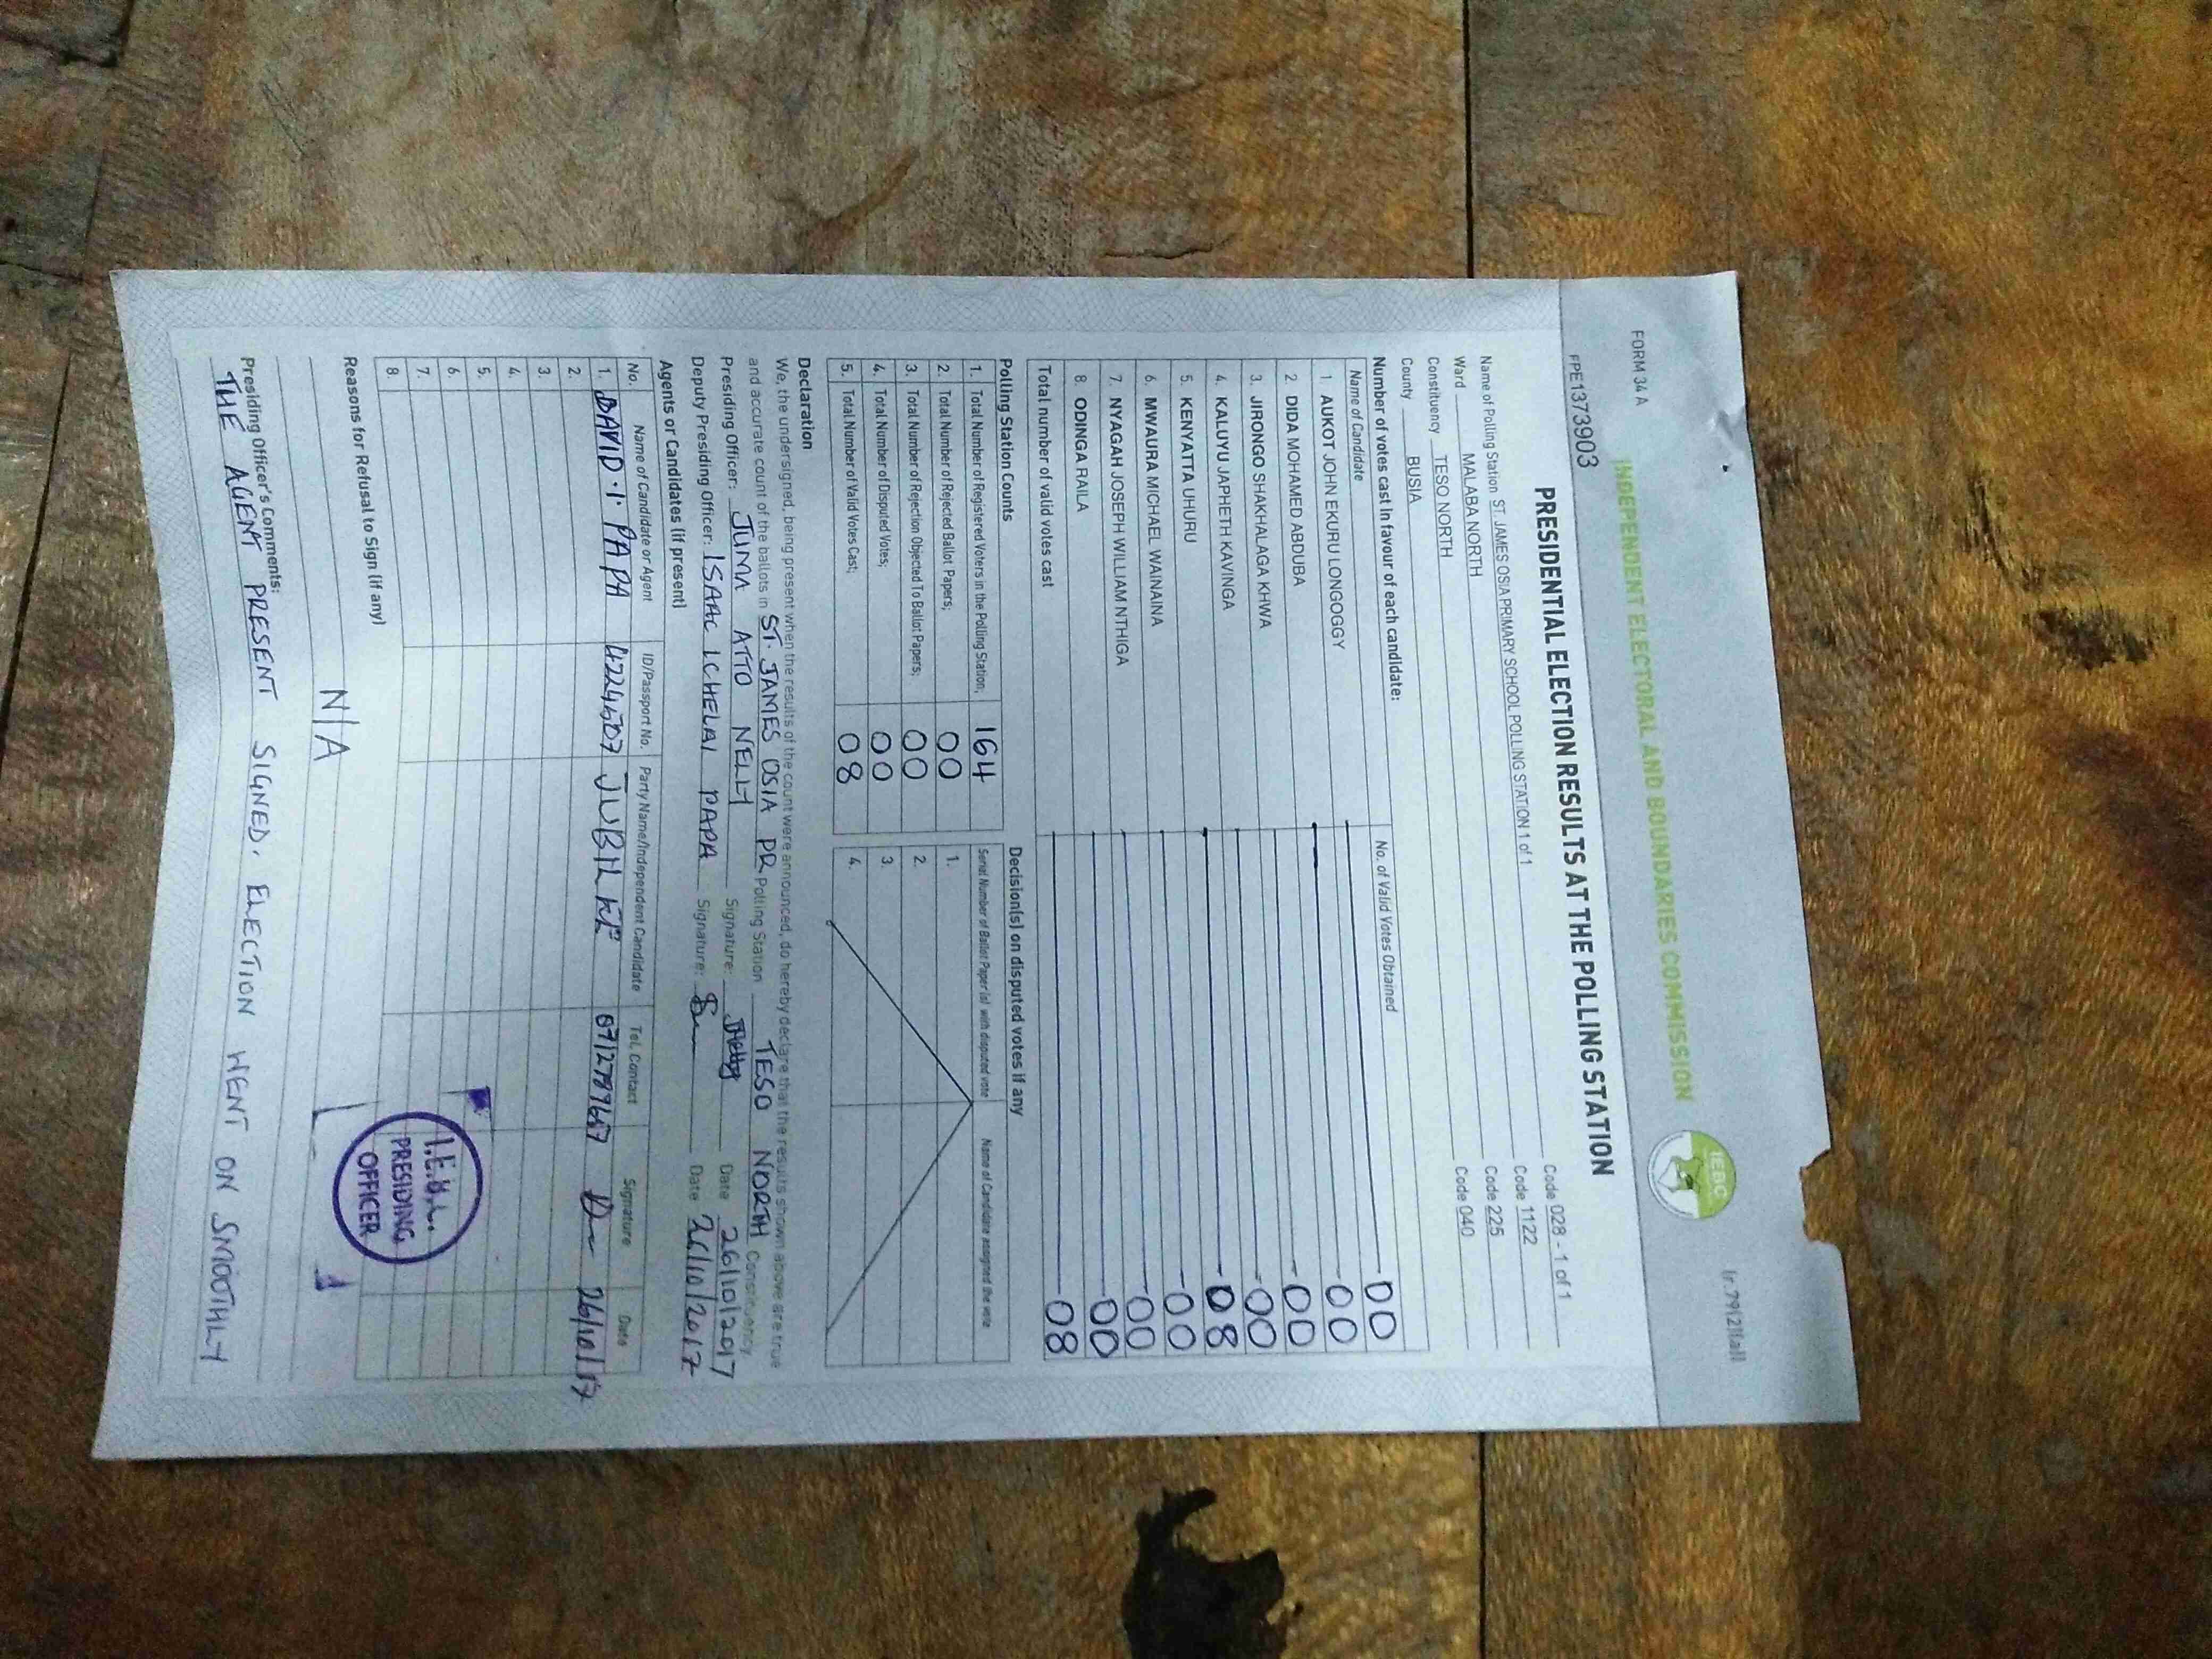 FORM 34 A
(r.79(2)(a))
INDEPENDENT ELECTORAL AND BOUNDARIES COMMISSION
IEBC
FPE1373903
PRESIDENTIAL ELECTION RESULTS AT THE POLLING STATION
Name of Polling Station ST. JAMES OSIA PRIMARY SCHOOL POLLING STATION 1 of 1 Code 028 - 1 of 1
Ward MALABA NORTH Code 1122
Constituency TESO NORTH Code 225
County BUSIA Code 040
Number of votes cast in favour of each candidate:
Name of Candidate No. of Valid Votes Obtained
1 AUKOT JOHN EKURU LONGOGGY 00
2 DIDA MOHAMED ABDUBA 00
3. JIRONGO SHAKHALAGA KHWA 00
4. KALUYU JAPHETH KAVINGA 00
5. KENYATTA UHURU 08
6. MWAURA MICHAEL WAINAINA 00
7. NYAGAH JOSEPH WILLIAM NTHIGA 00
8. ODINGA RAILA 00
Total number of valid votes cast 08
Polling Station Counts
1. Total Number of Registered Voters in the Polling Station; 164
2. Total Number of Rejected Ballot Papers; 00
3. Total Number of Rejection Objected To Ballot Papers; 00
4. Total Number of Disputed Votes; 00
5. Total Number of Valid Votes Cast; 08
Decision(s) on disputed votes if any
Serial Number of Ballot Paper (s) with disputed vote Name of Candidate assigned the vote
1.
2.
3.
4.
Declaration
We, the undersigned, being present when the results of the count were announced, do hereby declare that the results shown above are true
and accurate count of the ballots in ST. JAMES OSIA PR Polling Station TESO NORTH Constituency.
Presiding Officer: JUMA ATTO NELLY Signature: Date 26/10/2017
Deputy Presiding Officer: ISAAC ICHELAI PAPA Signature: Date 26/10/2017
Agents or Candidates (if present)
No. Name of Candidate or Agent ID/Passport No. Party Name/Independent Candidate Tel. Contact Signature Date
1. DAVID . I . PAPA JUBILEE 26/10/17
2.
3.
4.
5.
6.
7.
8.
PRESIDING OFFICER
Reasons for Refusal to Sign (if any)
N/A
Presiding Officer's Comments:
THE AGENT PRESENT SIGNED. ELECTION WENT ON SMOOTHLY